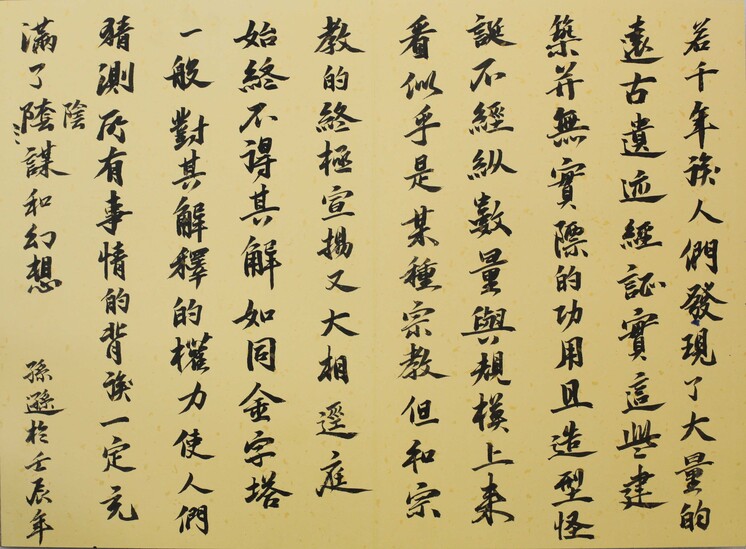 若千年後人們發現了大量的
遠古遺迹經証實這些建
築并無實際的功用且造型怪
誕不經縱數量與規模上來
看似乎是某種宗教但和宗
教的終極宣揚又大相逕庭
始終不得其解如同金字塔
一般對其解釋的權力使人們
猜測所有事情的背後一定充
陰
滿了謀和幻想
孫遜於壬辰年